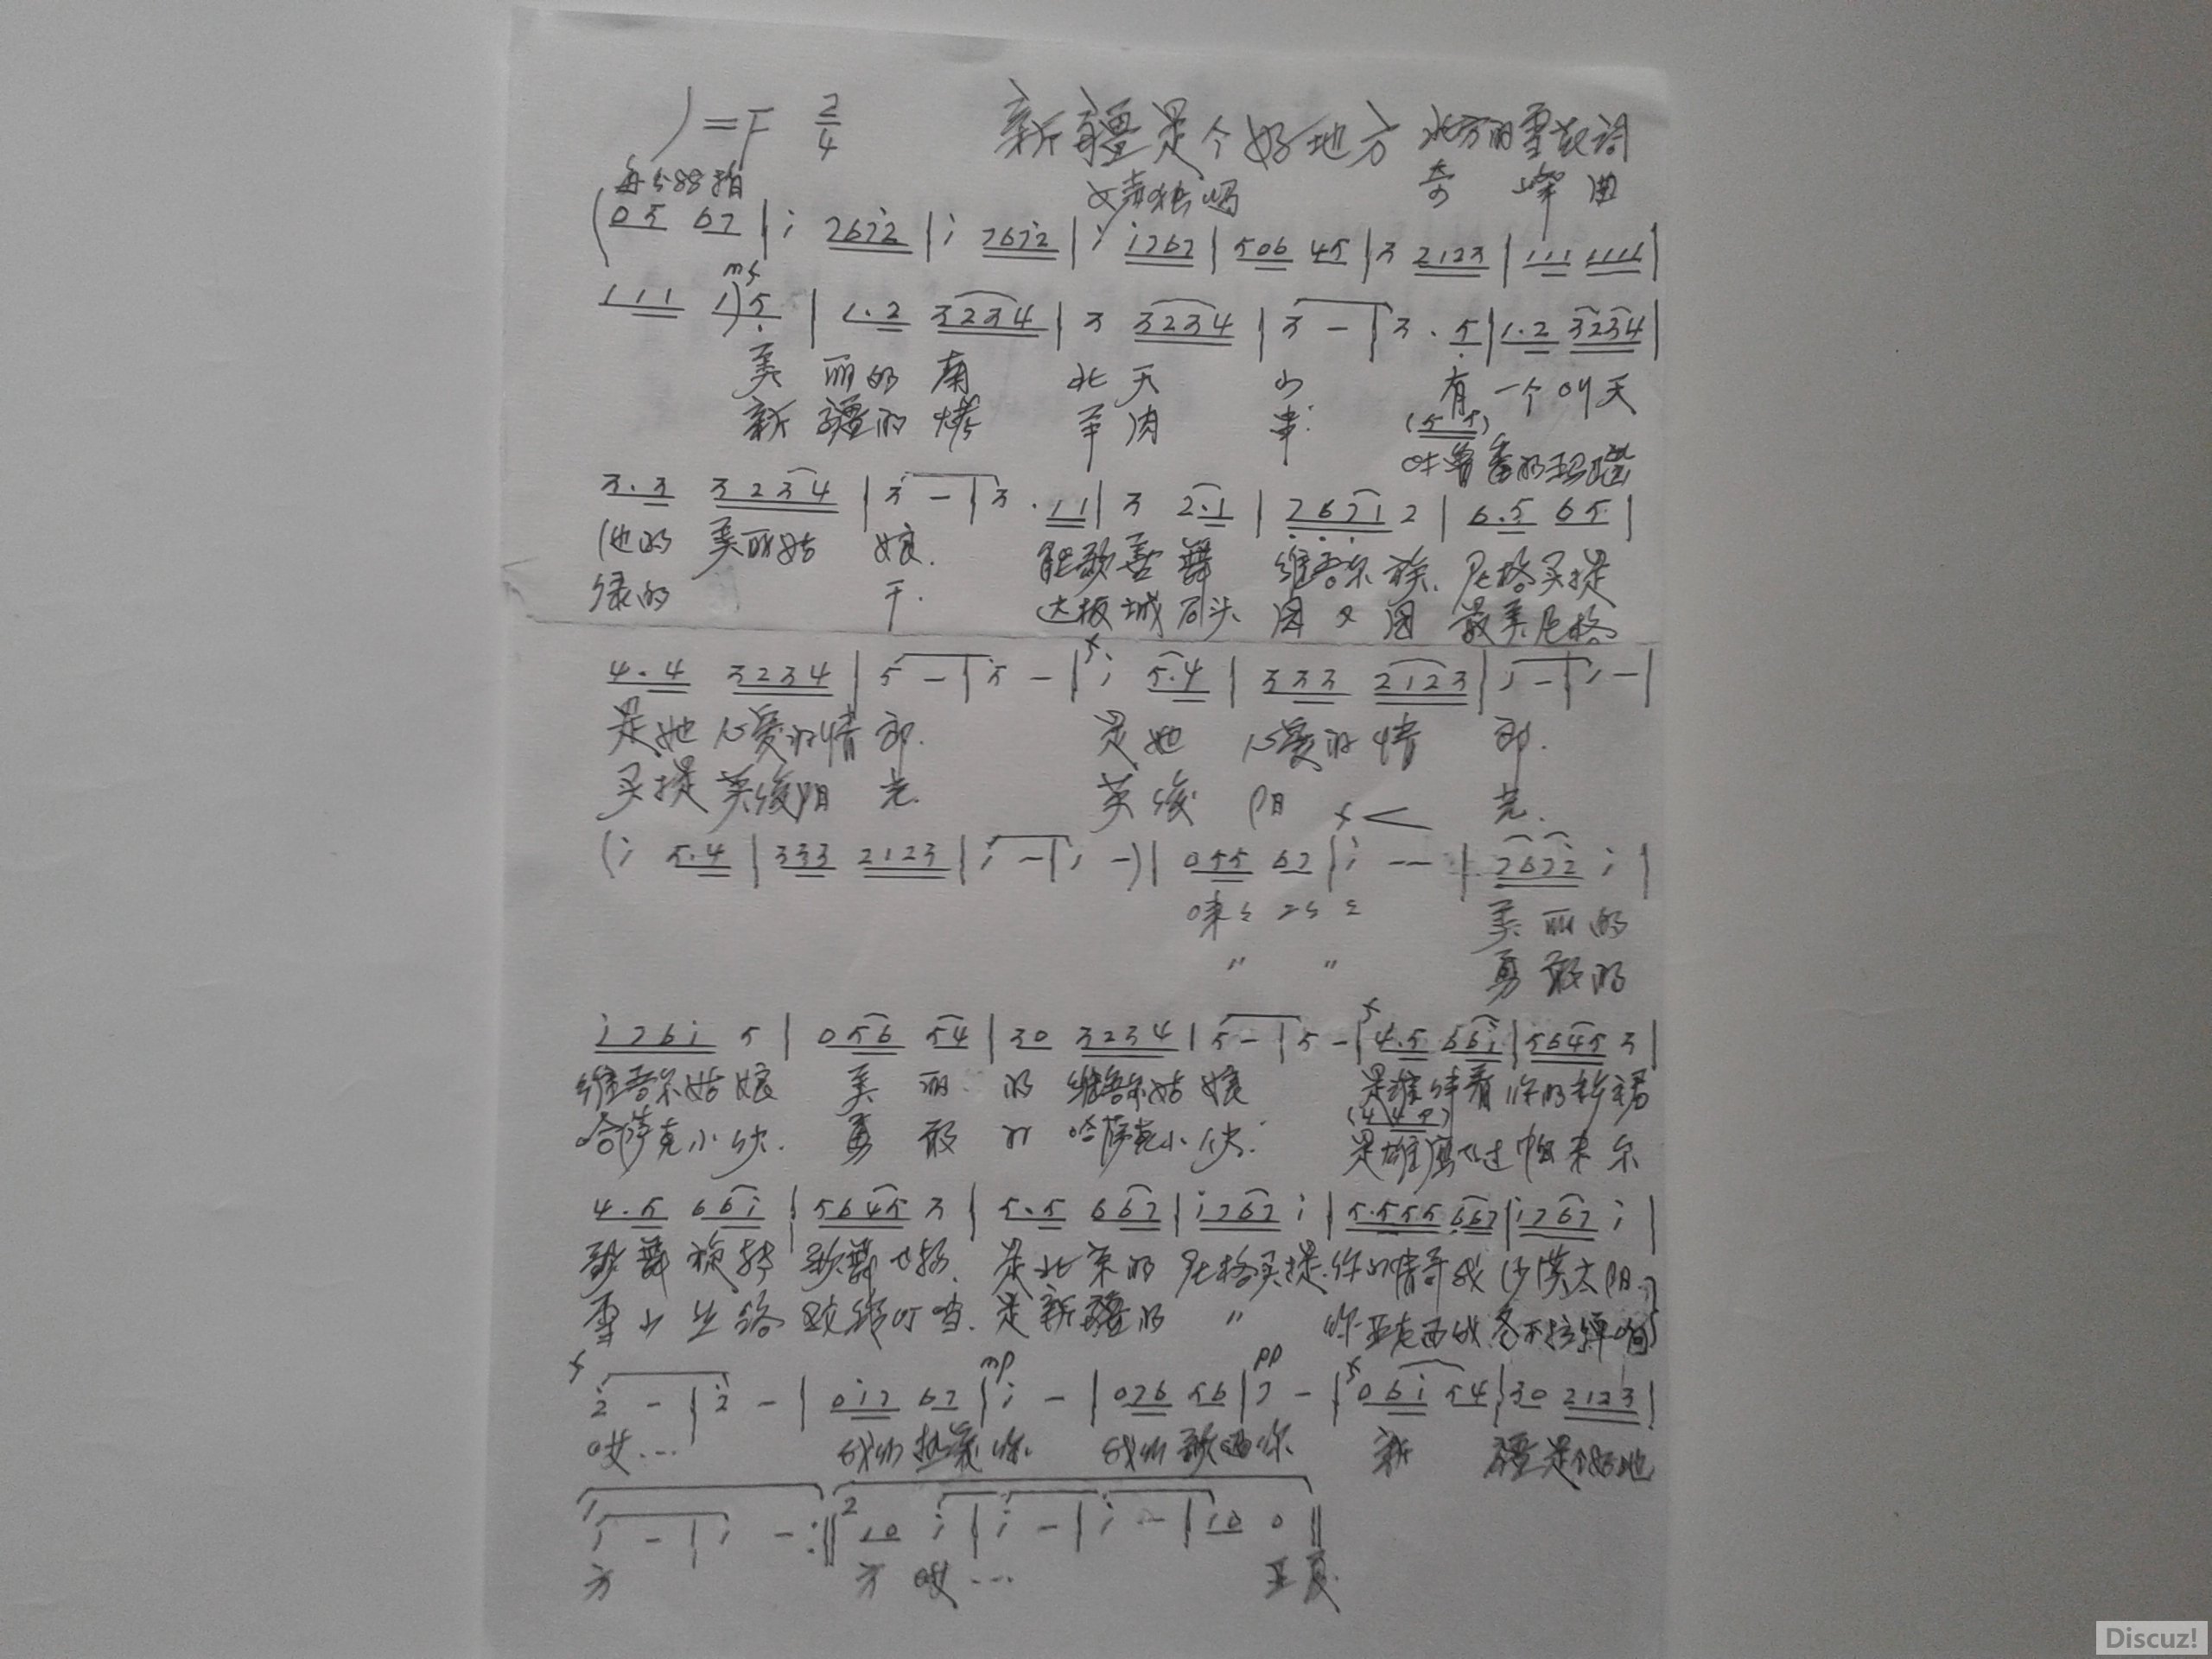 1=F 2/4 新疆是个好地方 北方的雪花词
每分88拍 女声独唱 奇峰曲
(05 67 | i 767i2 | i 7672 | i i767 | 506 45 | 3 2123 | 111 1111 |
mf
111 1)5 | 1.2 3234 | 3 3234 | 3 - | 3 . 5 | 1.2 3234 |
美丽的南 北天 山 有一个叫天
新疆的烤 羊肉 串 (55)
吐鲁番的
3.3 3234 | 3 - | 3 . 11 | 3 2.1 | 7671 2 | 6.5 65 |
他的美丽姑 娘. 能歌善舞 维吾尔族. 尼格买提
绿的 干. 达板城石头 圆又圆 最美尼格
f
4.4 3234 | 5 - | 5 - | i 5.4 | 333 2123 | i - | i - |
是她心爱的情郎. 是她 心爱的情 郎.
买提英俊阳光. 英俊 阳 光.
f <
(i 5.4 | 333 2123 | i - | i -) | 055 67 | i -- | 7672 i |
来 美丽的
〃 〃 勇敢的
f
i76i 5 | 056 54 | 30 3234 | 5 - | 5 - | 4.5 66i | 5645 3 |
维吾尔姑娘 美丽 的 维吾尔姑娘 是谁伴着你的
哈萨克小伙. 勇敢 的 哈萨克小伙. 是雄鹰飞过帕米尔
4.5 66i | 5645 3 | 5.5 667 | i767 i | 5.555 667 | i767 i |
歌舞旋转 歌舞飞扬. 是北京的 尼格买提. 你的情哥我 沙漠太阳.
雪山丝路 驼铃叮当. 是新疆的 〃 你亚克西我
f mp pp f
2 - | 2 - | 0i7 67 | i - | 076 56 | 7 - | 06i 54 | 30 2123 |
哎... 我们热爱你. 我们歌唱你. 新 疆是个好地
1 i - | i - :‖ 2 10 i | i - | i - | 10 0 ‖
方 方 哎... 亚夏.
Discuz!